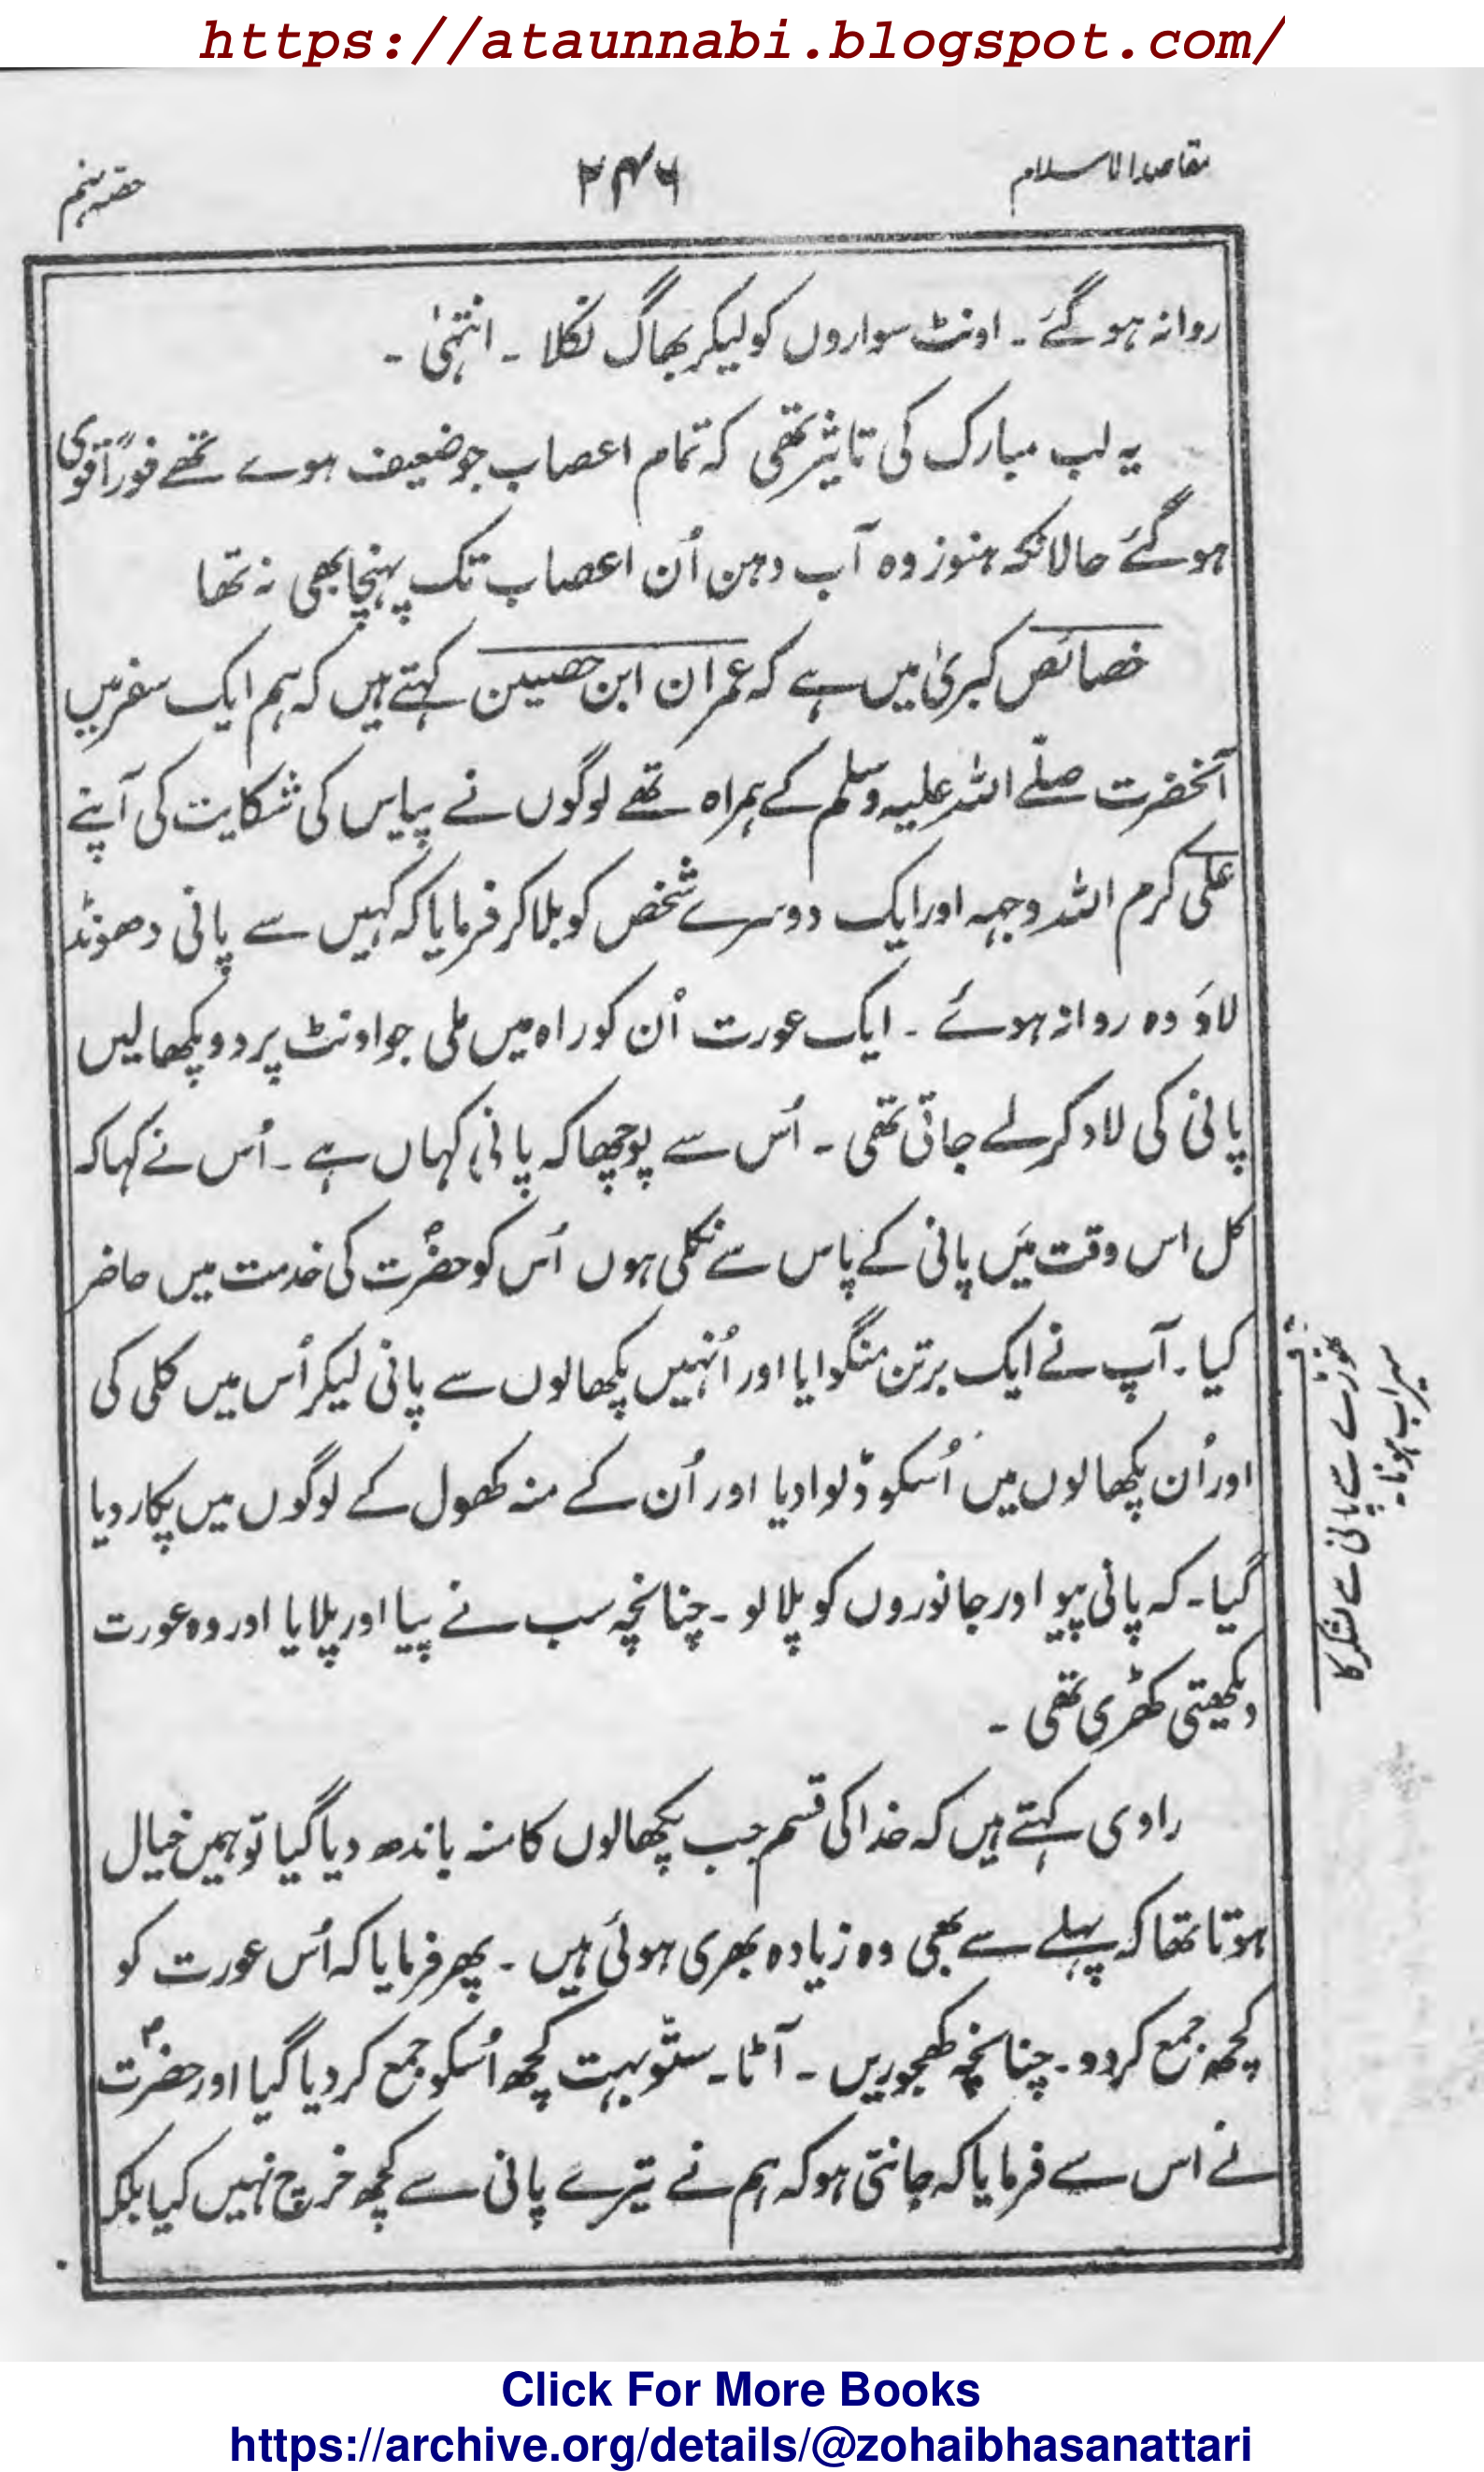 https://ataunnabi.blogspot.com/
مقاصد الاسلام
۲۴۶
حصہ پنجم
روانہ ہوگئے ۔ اونٹ سواروں کو لیکر بھاگ نکلا ۔ انتہیٰ ۔
یہ لب مبارک کی تاثیر تھی کہ تمام اعصاب جو ضعیف ہوے تھے فوراً قوی
ہوگئے حالانکہ ہنوز وہ آب دہن اُن اعصاب تک پہنچا بھی نہ تھا
خصائص کبریٰ میں ہے کہ عمران ابن حصیین کہتے ہیں کہ ہم ایک سفر میں
آنحضرت صلے اللہ علیہ وسلم کے ہمراہ تھے لوگوں نے پیاس کی شکایت کی آپنے
علی کرم اللہ وجہہ اور ایک دوسرے شخص کو بلا کر فرمایا کہ کہیں سے پانی دھونڈ
لاؤ وہ روانہ ہوئے ۔ ایک عورت اُن کو راہ میں ملی جو اونٹ پر دو پکھالیں
پانی کی لاد کر لے جاتی تھی ۔ اُس سے پوچھا کہ پانی کہاں ہے ۔ اُس نے کہا کہ
کل اس وقت میَں پانی کے پاس سے نکلی ہوں اُس کو حضرتؐ کی خدمت میں حاضر
کیا ۔ آپ نے ایک برتن منگوایا اور اُنہیں پکھالوں سے پانی لیکر اُس میں کلی کی
اور اُن پکھالوں میں اُسکو ڈلوا دیا اور اُن کے منہ کھول کے لوگوں میں پکار دیا
گیا ۔ کہ پانی پیو اور جانوروں کو پلا لو ۔ چنانچہ سب نے پیا اور پلایا اور وہ عورت
دیکھتی کھڑی تھی ۔
تھوڑے سے پانی سے لشکر کا
سیراب ہونا ۔
راوی کہتے ہیں کہ خدا کی قسم جب پکھالوں کا منہ باندھ دیا گیا تو ہمیں خیال
ہوتا تھا کہ پہلے سے بھی وہ زیادہ بھری ہوئی ہیں ۔ پھر فرمایا کہ اُس عورت کو
کچھ جمع کر دو ۔ چنانچہ کھجوریں ۔ آٹا ۔ ستّو بہت کچھ اُسکو جمع کر دیا گیا اور حضرتؐ
نے اس سے فرمایا کہ جانتی ہو کہ ہم نے تیرے پانی سے کچھ خرچ نہیں کیا بلکہ
Click For More Books
https://archive.org/details/@zohaibhasanattari